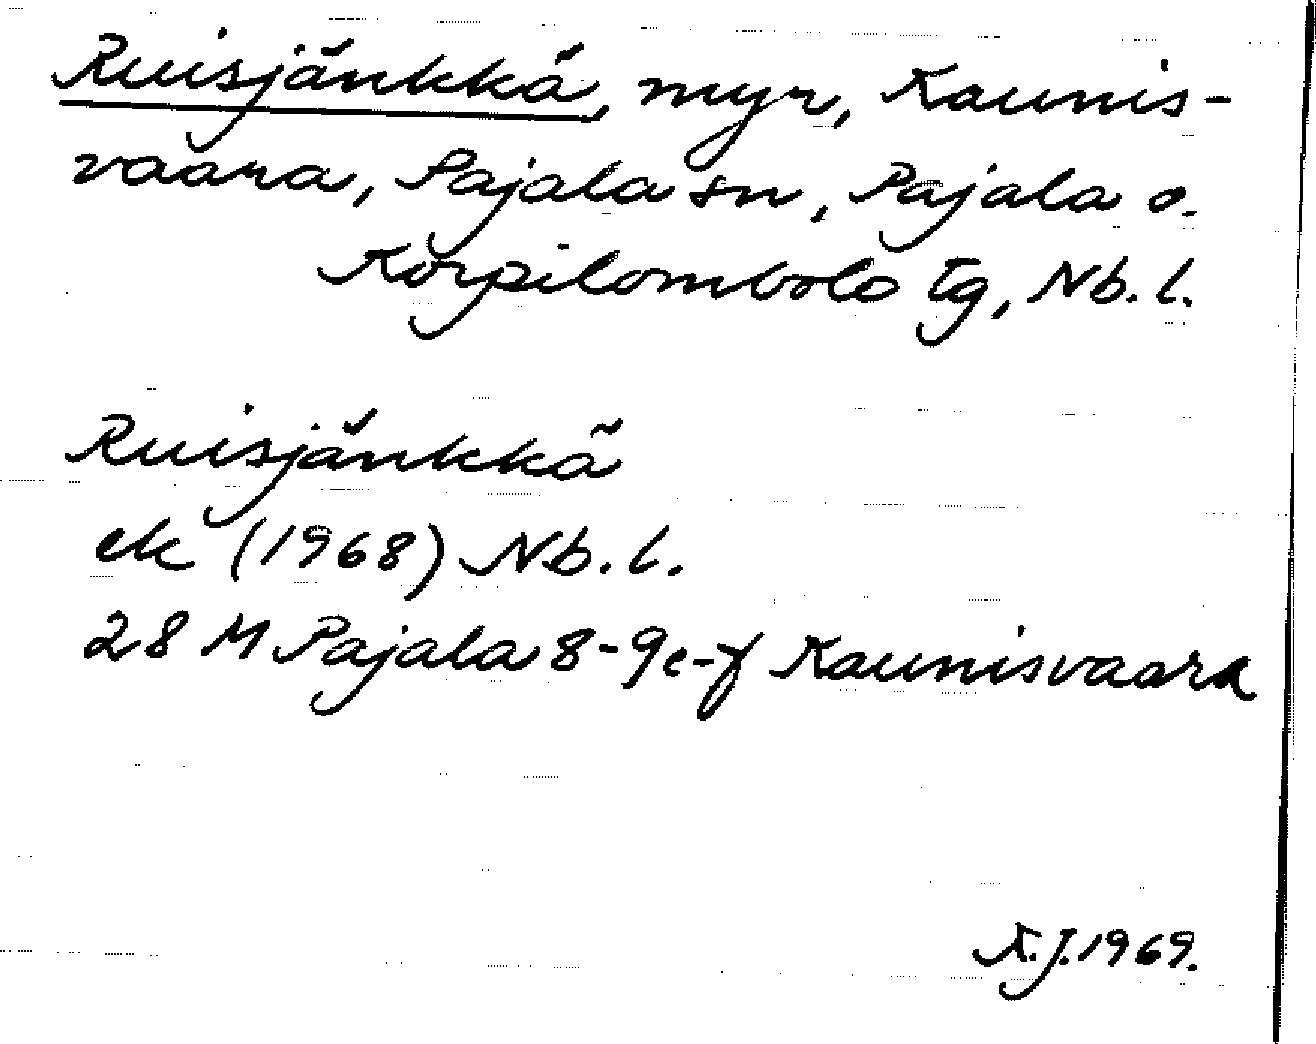 Ruisjänkkä, myr, Kaunis-
vaara, Pajala sn, Pajala o.
Korpilombolo tg, Nb. l.
Ruisjänkkä
ek (1968) Nb. l.
28 M Pajala 8-9e-f Kaunisvaara
K.J. 1969.